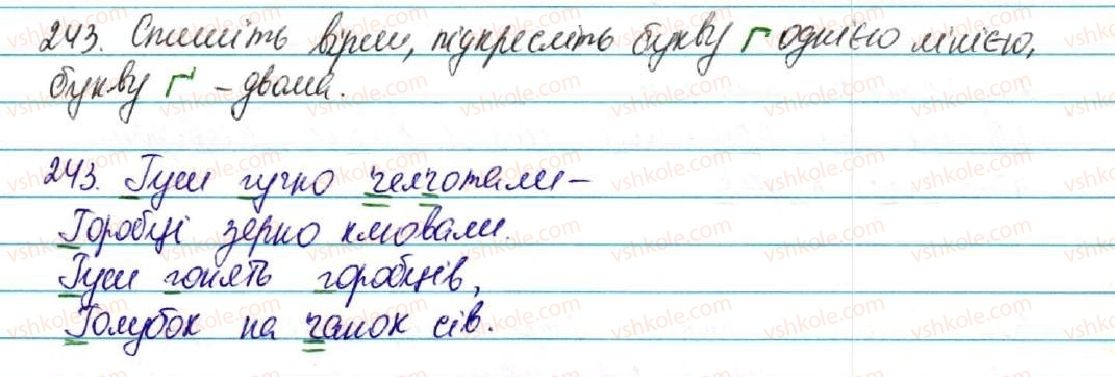 243. Спишіть вірш, підкресліть букву г однією лінією,
букву ґ - двома.
243. Гуси гучно ґелґотали –
Горобці зерно клювали.
Гуси гонять горобців,
Голубок на ґанок сів.